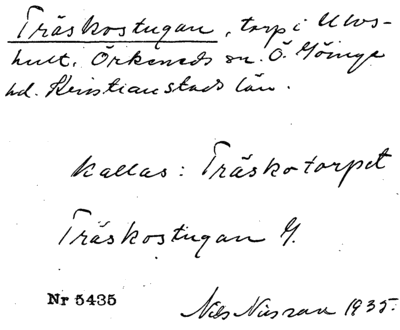 Träskostugan, torp i Ulvs-
hult, Örkeneds sn. Ö. Göinge
hd. Kristianstads län.
kallas: Träskotorpet
Träskostugan
Nr 5435
Nils Nilsson 1935.